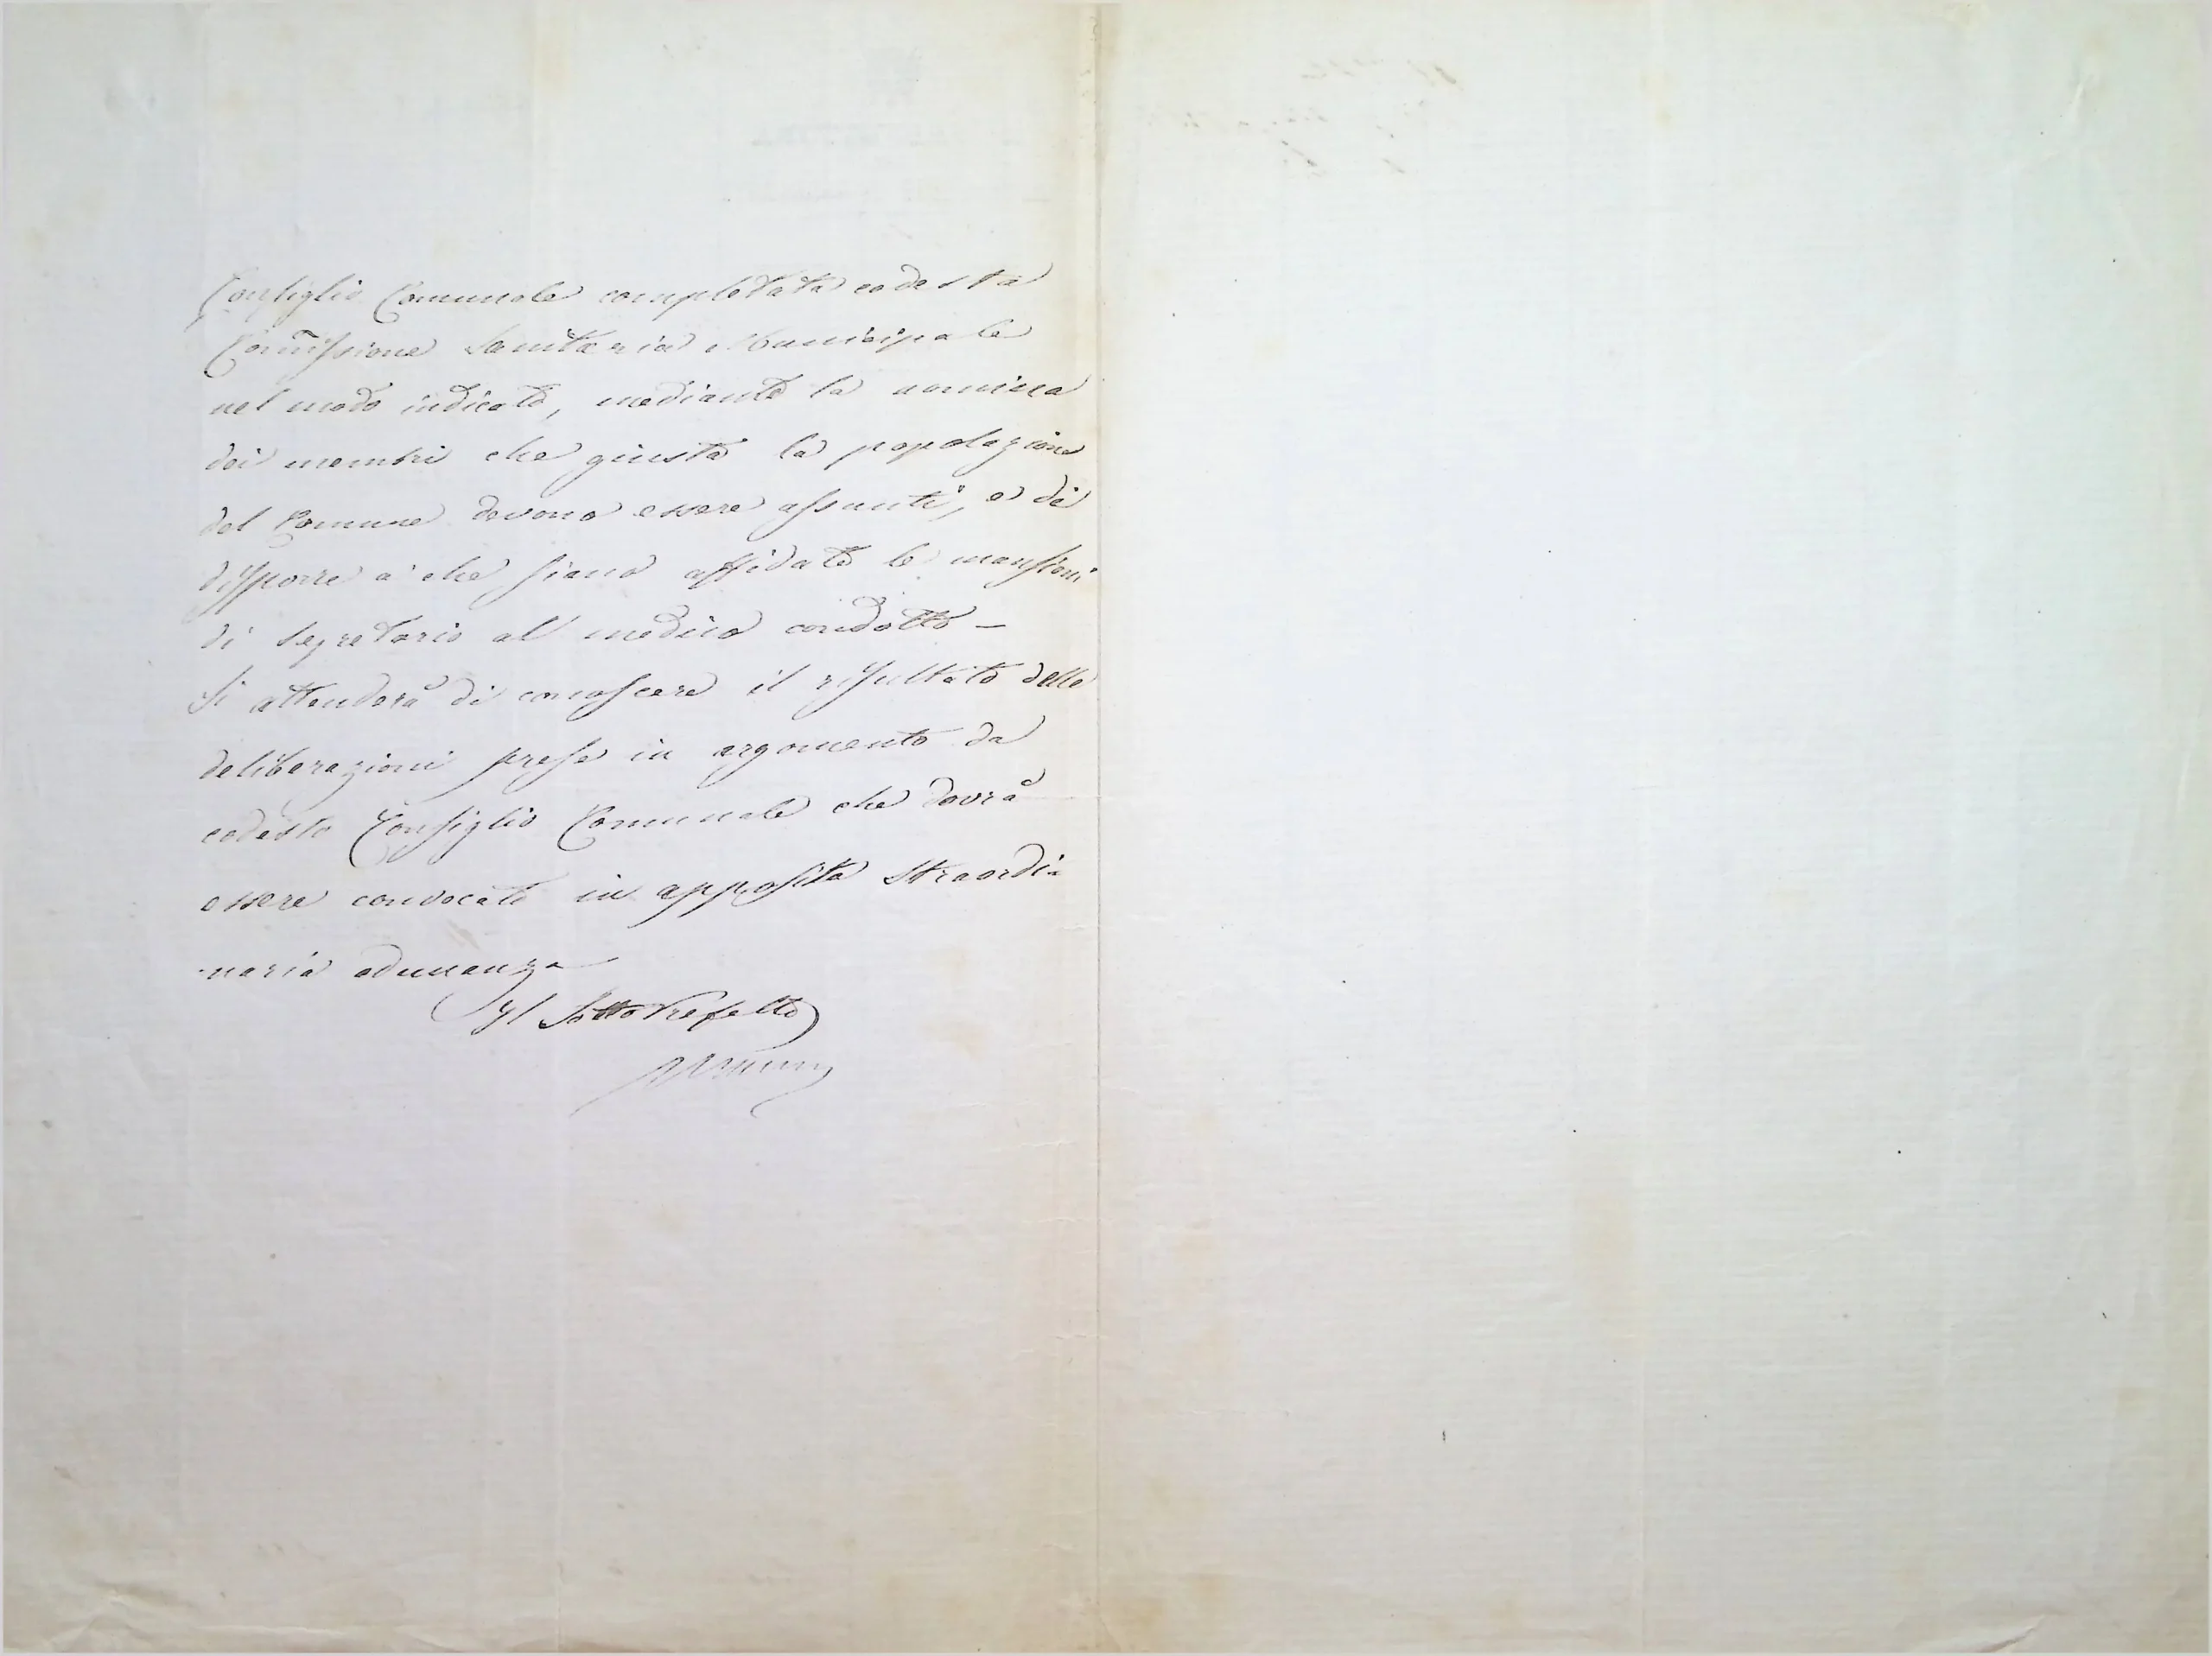 Consiglio Comunale completata codesta
Com̃issione Sanitaria Municipale
nel modo indicato, mediante la nomina
dei membri che giusta la popolazione
del Comune devono essere assunti, e di
disporre a che siano affidate le mansioni
di segretario al medico condotto –
Si attenderà di conoscere il risultato delle
deliberazioni prese in argomento da
codesto Consiglio Comunale che dovrà
essere convocato in apposita straordi-
-naria adunanza
Il Sotto Prefetto